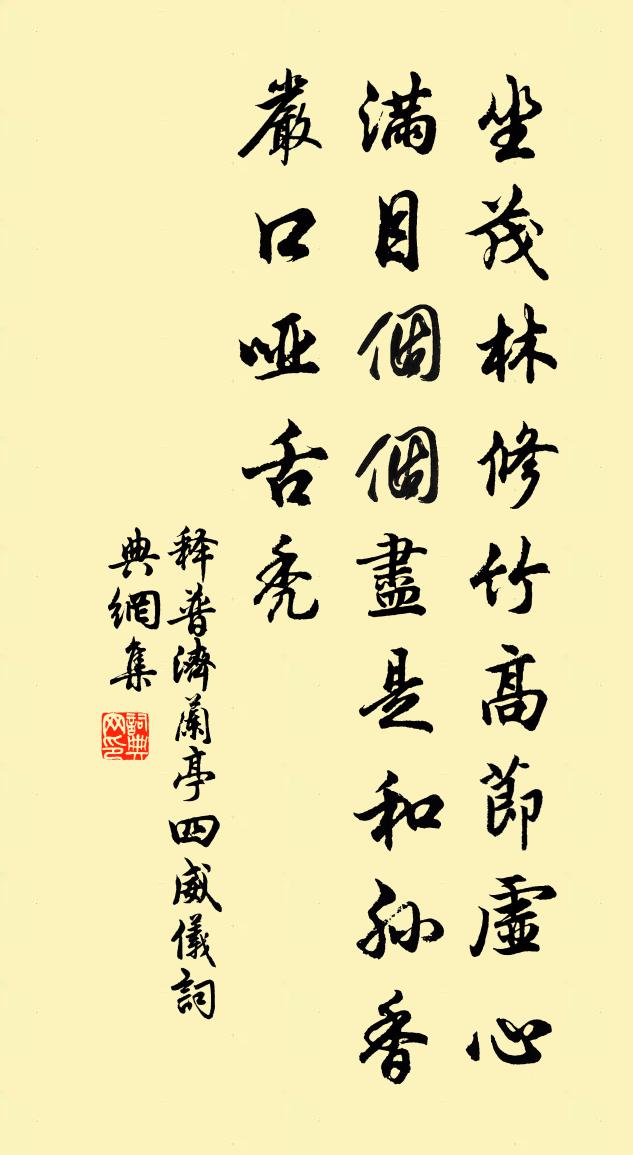 坐茂林修竹高節虛心
滿目個個盡是和孙香
嚴口啞舌禿
释普濟蘭亭四威儀詞
典網集
詞典网印